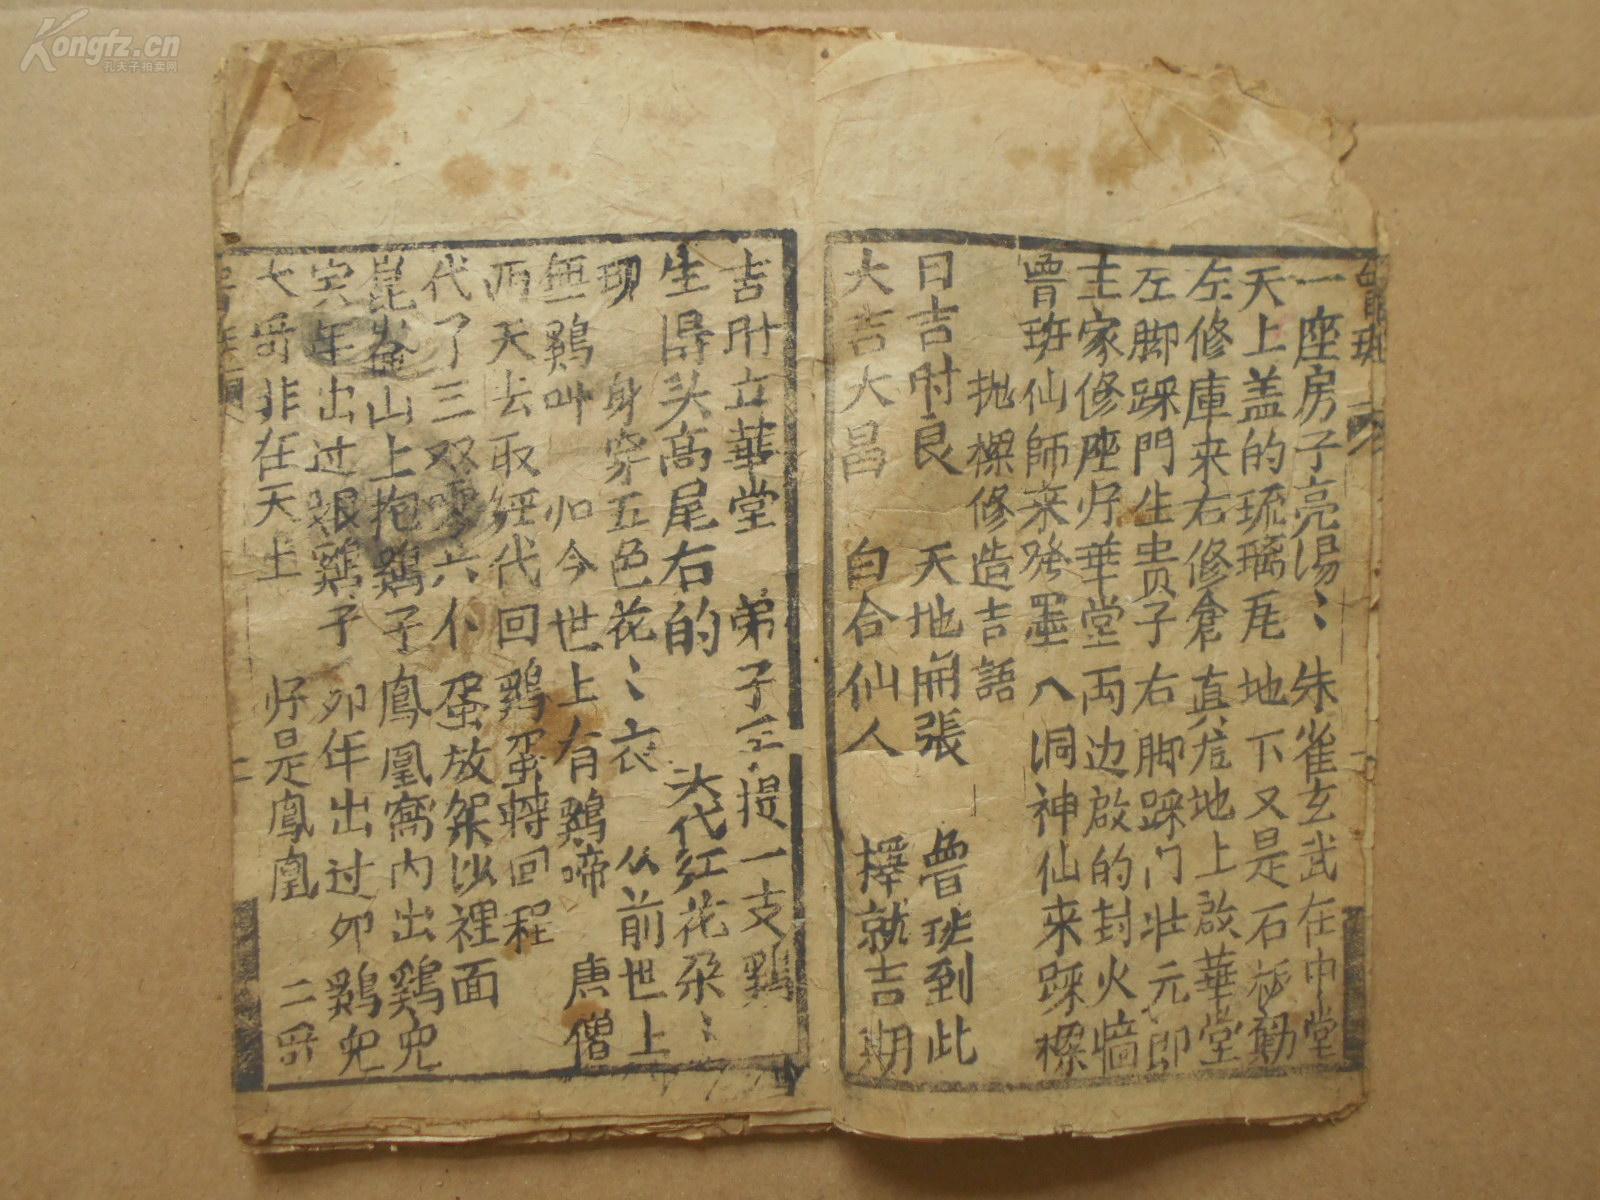 Kongfz.cn
孔夫子拍卖网
一座房子亮湯〻朱雀玄武在中堂
天上盖的琉璃瓦地下又是石板動
左修庫来右修倉真龙地上啟華堂
左脚踩門生贵子右脚踩门壮元郎
主家修座好華堂両边啟的封火墙
曾班仙師来発墨八洞神仙来踩樑
抛樑修造吉語
日吉时良 天地開張 魯班到此
大吉大昌 白合仙人 擇就吉期
吉时立華堂 弟子手提一支鷄
生得头高尾右的 头代红花朵〻
現 身穿五色花〻衣 从前世上
無鷄叫 如今世上有鷄啼 唐僧
西天去取経代回鷄蛋轉回程
代了三双零六个 蛋放架沙裡面
崑崙山上抱鷄子鳳凰窩内出鷄兒
寅年出过银鷄子 卯年出过卯鷄兒
大哥非在天上 好是鳳凰 二哥
二